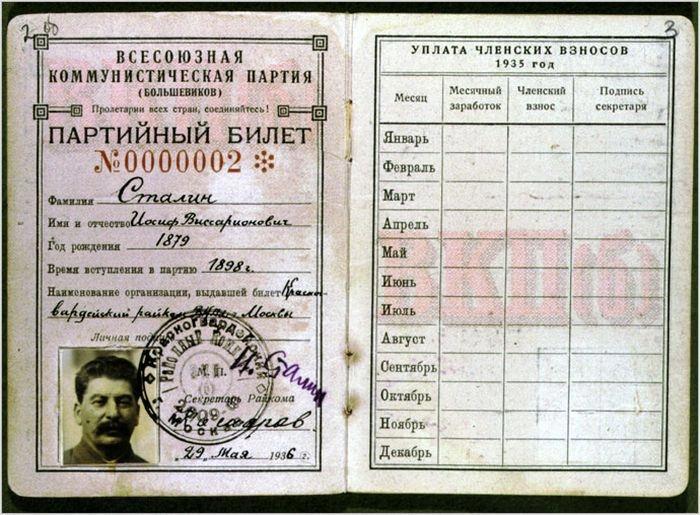 2
ВСЕСОЮЗНАЯ
КОММУНИСТИЧЕСКАЯ ПАРТИЯ
(БОЛЬШЕВИКОВ)
Пролетарии всех стран, соединяйтесь!
ПАРТИЙНЫЙ БИЛЕТ
№0000002
Фамилия Сталин
Имя и отчество Иосиф Виссарионович
Год рождения 1879
Время вступления в партию 1898 г.
Наименование организации, выдавшей билет Красно-
гвардейский райком Москвы
Личная
Красногвардейский
Районный
И. Сталин
М. П.
Секретарь Райкома
МОСКВ
"29" Мая 1936 г.
3
УПЛАТА ЧЛЕНСКИХ ВЗНОСОВ
1935 год
Месяц Месячный заработок Членский взнос Подпись секретаря
Январь
Февраль
Март
Апрель
Май
Июнь
Июль
Август
Сентябрь
Октябрь
Ноябрь
Декабрь
ВКП(б)